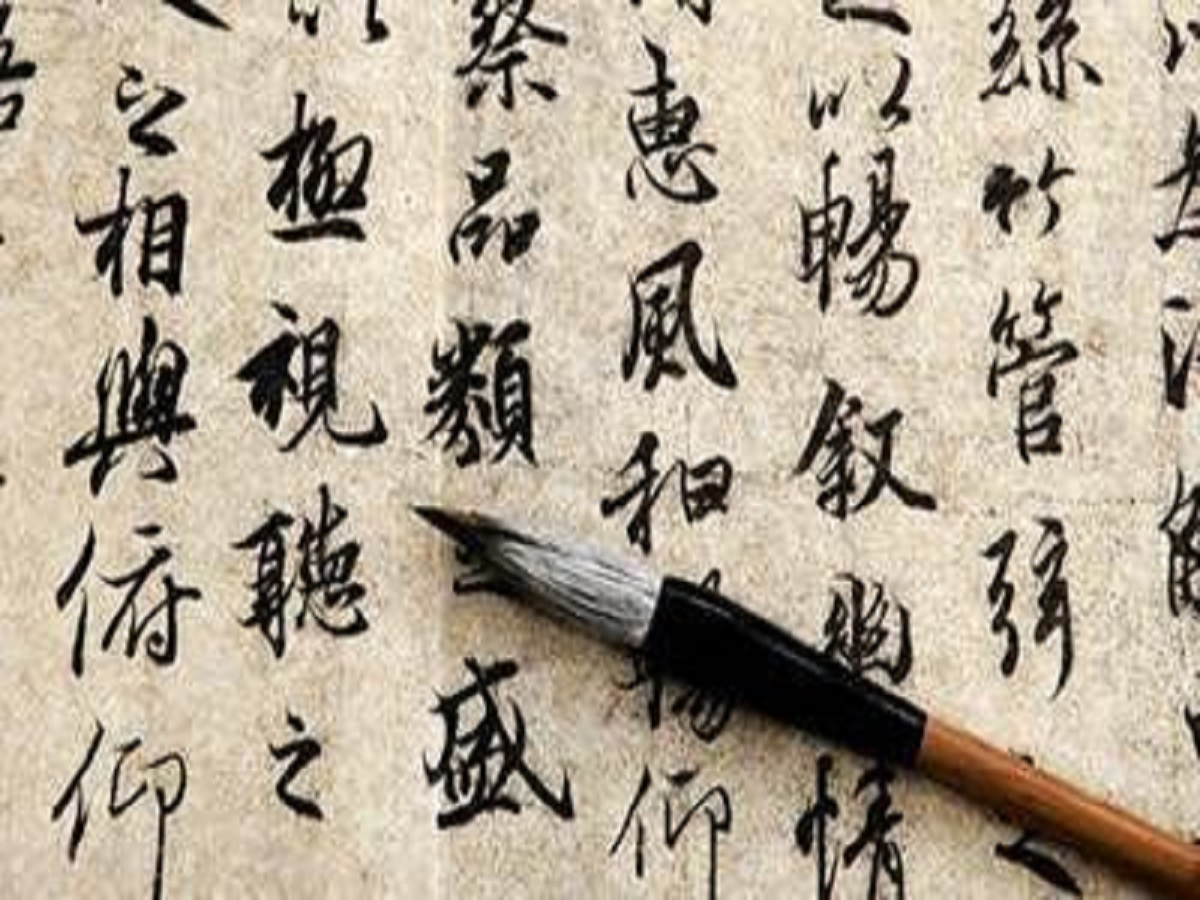 絲竹管弦
以暢叙幽情
惠風和暢仰
察品類盛
以極視聽之
之相與俯仰